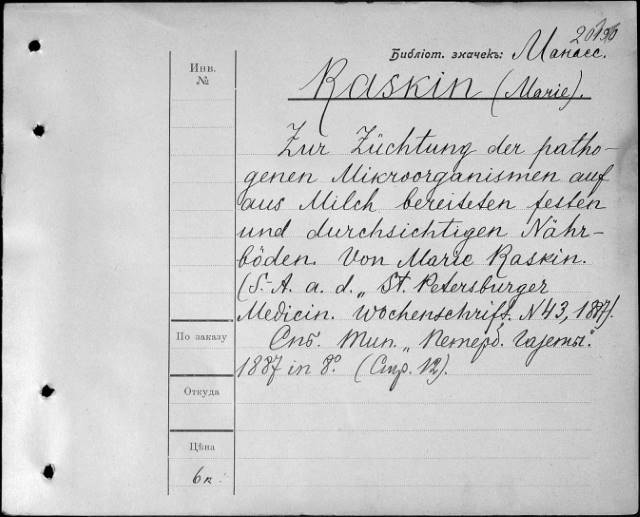 Библіот. значекъ: Манасс.
Инв.
№
Raskin (Marie).
Zur Züchtung der patho-
genen Mikroorganismen auf
aus Milch bereiteten festen
und durchsichtigen Nähr-
böden. Von Marie Raskin.
(S.-A. a. d. „St. Petersburger
Medicin. Wochenschrift, N 43, 1887).
По заказу
Спб. Тип. „Петерб. газеты.
1887 in 8º. (Стр. 12).
Откуда
Цѣна
6 к.